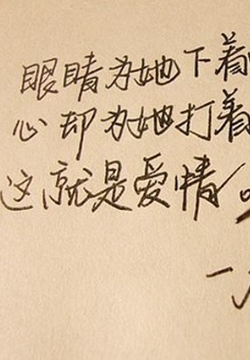 眼睛为她下着
心却为她打着
这就是爱情
一